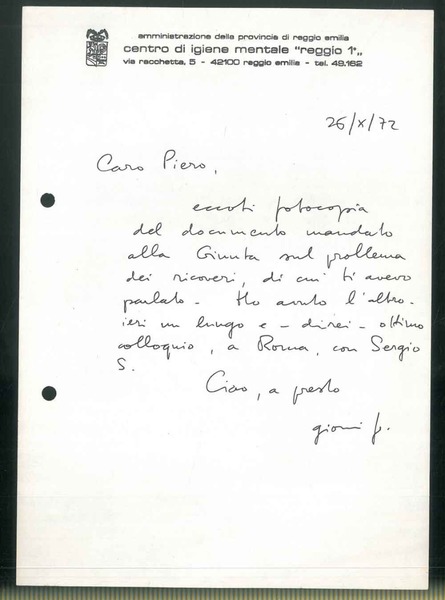 amministrazione della provincia di reggio emilia
centro di igiene mentale "reggio 1",,
via racchetta, 5 - 42100 reggio emilia - tel. 49.162
26/X/72
Caro Piero,
eccoti fotocopia
del documento mandato
alla Giunta sul problema
dei ricoveri, di cui ti avevo
parlato - Ho avuto l'altro-
ieri un lungo e - direi - ottimo
colloquio, a Roma, con Sergio
S.
Ciao, a presto